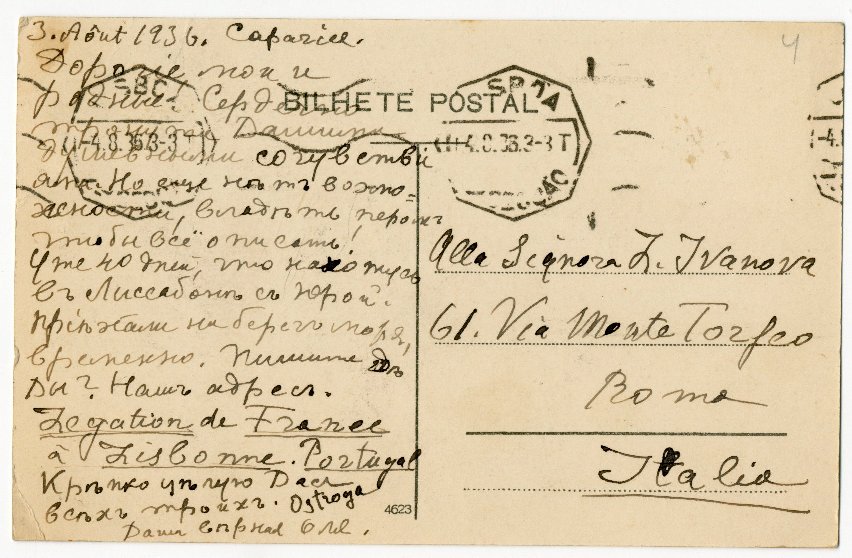 3. Août 1936. Caparica.
Дорогіе мои и
родные! Сердечно
тронута Вашими
душевными сочувствiи
ями. Но еще нѣтъ возмо=
жности, владѣть перомъ
чтобы всё описать,
Уже 10 дней, что нахожусь
въ Лиссабонѣ съ Юрой.
Пріѣхали на берегъ моря,
временно. Пишите
Нашъ адресъ.
Legation de France
à Lisbonne. Portugal
Крѣпко цѣлую Васъ
всѣхъ троихъ. Ostroga
Ваша вѣрная Оля.
BILHETE POSTAL
4.8.36.3-3T
4.8.36.3-3T
4623
4
Alla Signora L. Ivanova
61. Via Monte Tarpeo
Roma
Italia